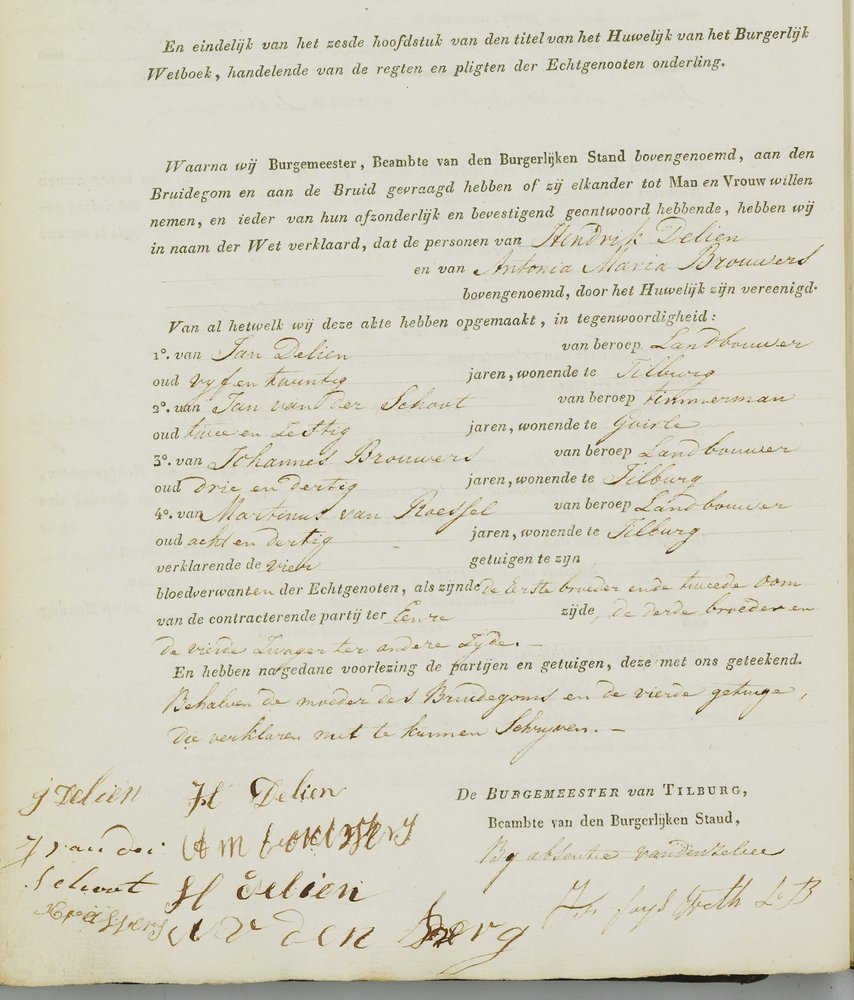 En eindelijk van het zesde hoofdstuk van den titel van het Huwelijk van het Burgerlijk
Wetboek, handelende van de regten en pligten der Echtgenooten onderling.
Waarna wij Burgemeester, Beambte van den Burgerlijken Stand bovengenoemd, aan den
Bruidegom en aan de Bruid gevraagd hebben of zij elkander tot Man en Vrouw willen
nemen, en ieder van hun afzonderlijk en bevestigend geantwoord hebbende, hebben wij
in naam der Wet verklaard, dat de personen van Hendrik Delien
en van Antonia Maria Brouwers
bovengenoemd, door het Huwelijk zijn vereenigd.
Van al hetwelk wij deze akte hebben opgemaakt, in tegenwoordigheid:
1°. van Jan Delien van beroep Landbouwer
oud vyf en twintig jaren, wonende te Tilburg
2°. van Jan van der Schoot van beroep timmerman
oud twee en Zestig jaren, wonende te Goirle
3°. van Johannes Brouwers van beroep Landbouwer
oud drie en dertig jaren, wonende te Tilburg
4°. van Martinus van Roessel van beroep Landbouwer
oud acht en dertig jaren, wonende te Tilburg
verklarende de vier getuigen te zijn
bloedverwanten der Echtgenoten, als zijnde de Eerste broeder en de tweede oom
van de contracterende partij ter Eenre zijde, de derde broeder en
de vierde Zwager ter andere Zyde. -
En hebben na gedane voorlezing de partijen en getuigen, deze met ons geteekend.
Behalven de moeder des Bruidegoms en de vierde getuige,
die verklaren niet te kunnen Schryven. -
J Delien H Delien
De BURGEMEESTER van TILBURG,
Beambte van den Burgerlijken Stand,
J van der A M Brouwers
By absentie van denzelven
Schoot H Delien
v den Berg